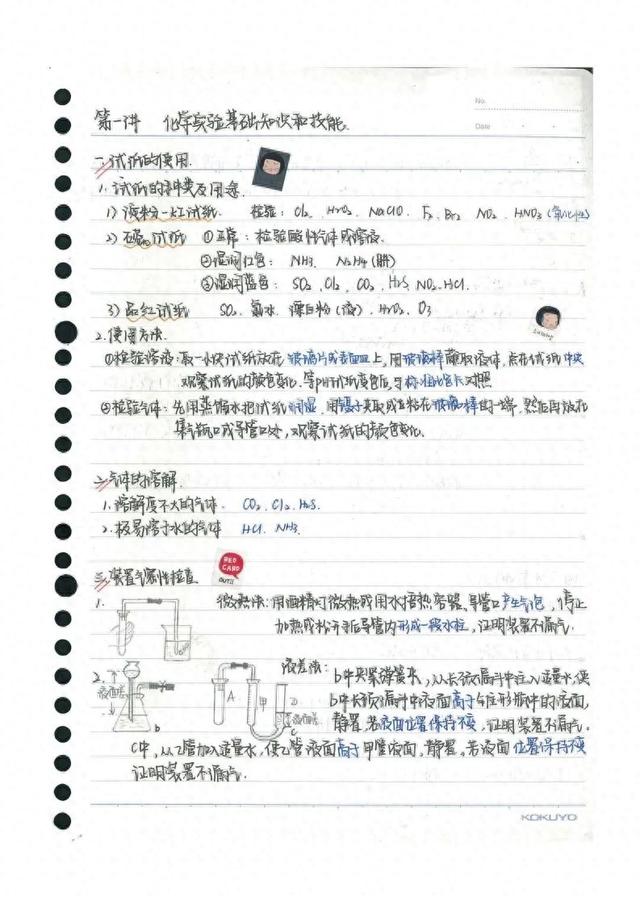 No.
Date
第一讲 化学实验基础知识和技能.
一.试纸的使用.
1.试纸的种类及用途.
1) 淀粉-KI试纸. 检验: Cl₂. H₂O₂. NaClO. F₂. Br₂ NO₂. HNO₃ (氧化性)
2) 石蕊试纸 ①正常: 检验酸性气体或溶液.
②湿润红色: NH₃. N₂H₄(肼)
③湿润蓝色: SO₂. Cl₂. CO₂. H₂S. NO₂. HCl.
3) 品红试纸 SO₂. 氯水. 漂白粉(液). H₂O₂. O₃
2.使用方法.
①检验溶液:取一小块试纸放在玻璃片或表面皿上,用玻璃棒蘸取液体,点在试纸中央
观察试纸的颜色变化.等pH试纸变色后,与标准比色卡对照.
②检验气体: 先用蒸馏水把试纸润湿.用镊子夹取或粘在玻璃棒的一端,然后再放在
集气瓶口或导管口处,观察试纸的颜色变化.
二.气体的溶解.
1.溶解度不大的气体. CO₂. Cl₂. H₂S.
2.极易溶于水的气体 HCl. NH₃.
RED
CARD
OUT!!
三.装置气密性检查.
1. 微热法:用酒精灯微热或用水捂热容器,导管口产生气泡,停止
加热或松开手后导管内形成一段水柱,证明装置不漏气.
2. 液差法: b中夹紧弹簧夹,从长颈漏斗中注入适量水,使
b中长颈漏斗中液面高于锥形瓶中的液面,
静置,若液面位置保持不变,证明装置不漏气.
液面差
b
A
甲
乙
液面差
C
C中,从乙管加入适量水,使乙管液面高于甲管液面,静置,若液面位置保持不变
证明装置不漏气.
KOKUYO